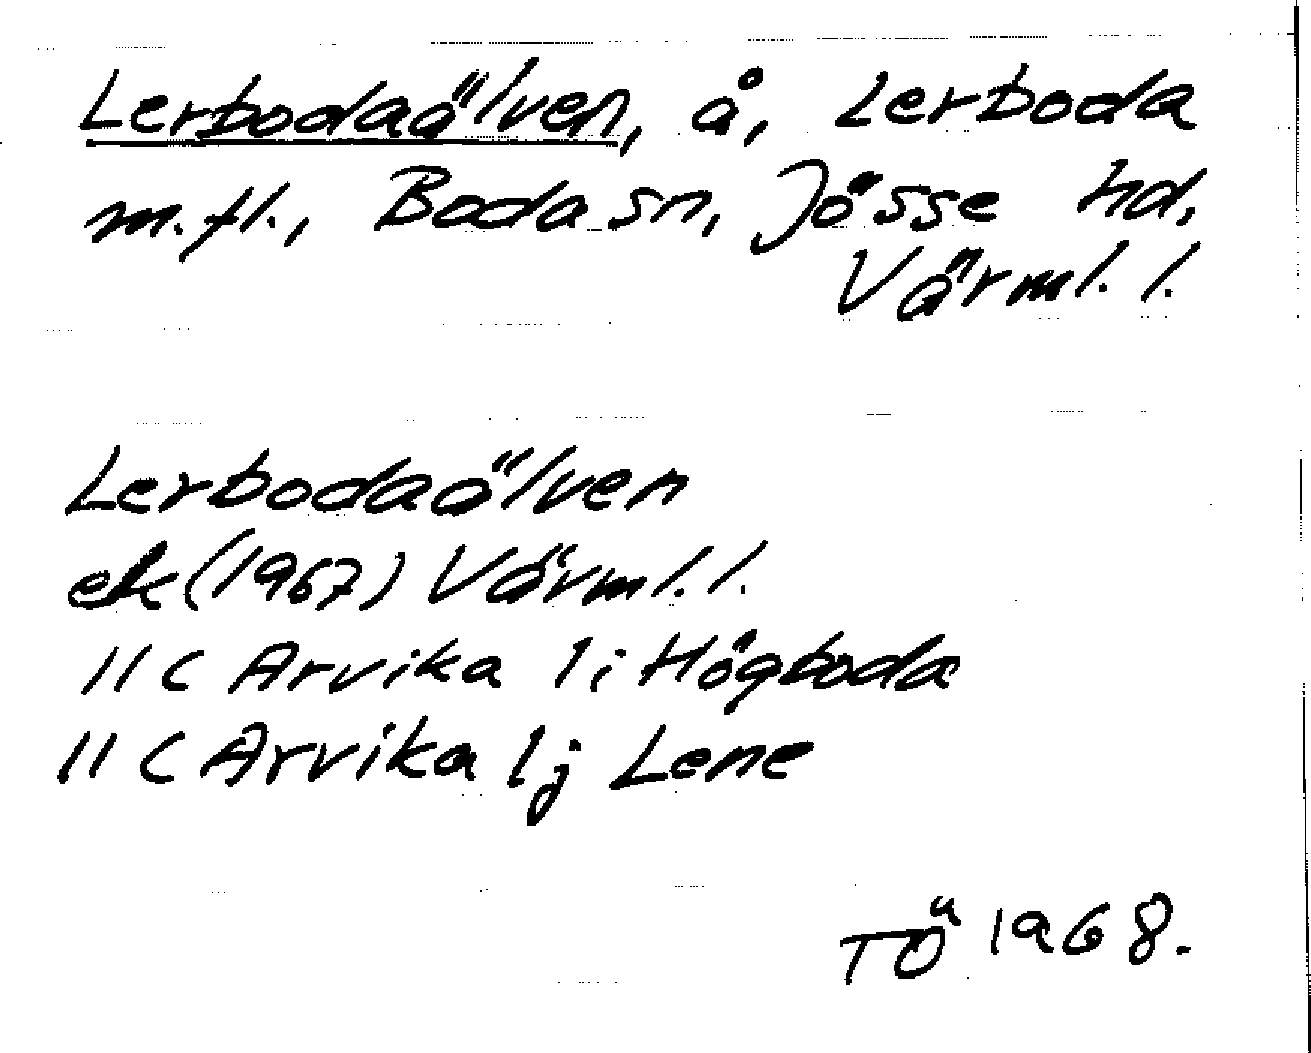 Lerbodaälven, å, Lerboda
m.fl., Boda sn, Jösse hd,
Värml. l.
Lerbodaälven
ek (1967) Värml. l.
11 C Arvika 1i Högboda
11 C Arvika 1j Lene
TÖ 1968.